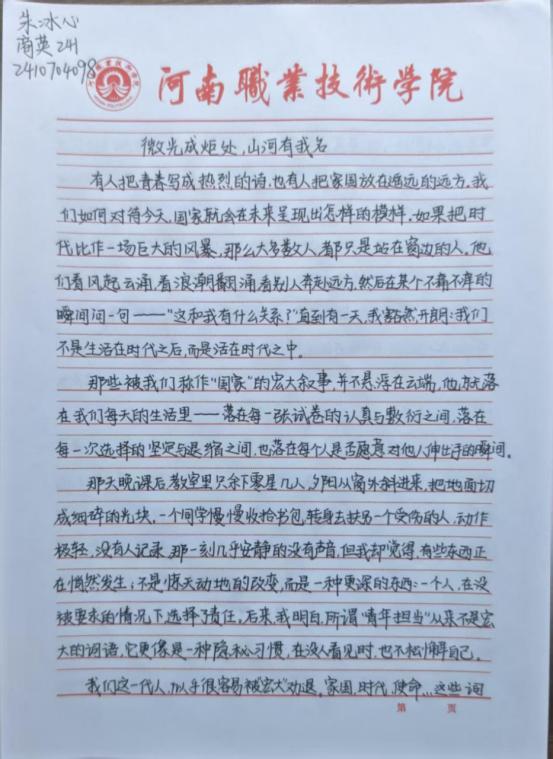 朱冰心
商英241
2410704098
河南職業技術学院
微光成炬处,山河有我名
有人把青春写成热烈的诗,也有人把家国放在遥远的远方。我
们如何对待今天,国家就会在未来呈现出怎样的模样。如果把时
代比作一场巨大的风暴,那么大多数人,都只是站在窗边的人。他
们看风起云涌,看浪潮翻涌,看别人奔赴远方,然后在某个不痛不痒的
瞬间问一句——“这和我有什么关系?”直到有一天,我豁然开朗:我们
不是生活在时代之后,而是活在时代之中。
那些被我们称作“国家”的宏大叙事,并不悬浮在云端,他就落
在我们每天的生活里——落在每一张试卷的认真与敷衍之间,落在
每一次选择的坚定与退缩之间,也落在每个人是否愿意对他人伸出手的瞬间。
那天晚课后,教室里只余下零星几人,夕阳从窗外斜进来,把地面切
成细碎的光块。一个同学慢慢收拾书包,转身去扶另一个受伤的人,动作
极轻,没有人记录。那一刻几乎安静的没有声音,但我却觉得,有些东西正
在悄然发生:不是惊天动地的改变,而是一种更深的东西:一个人,在没
被要求的情况下,选择了责任。后来,我明白,所谓“青年担当”从来不是宏
大的词语,它更像是一种隐秘习惯,在没人看见时,也不松懈自己。
我们这一代人,似乎很容易被“宏大”劝退。家国,时代,使命...这些词
第 页